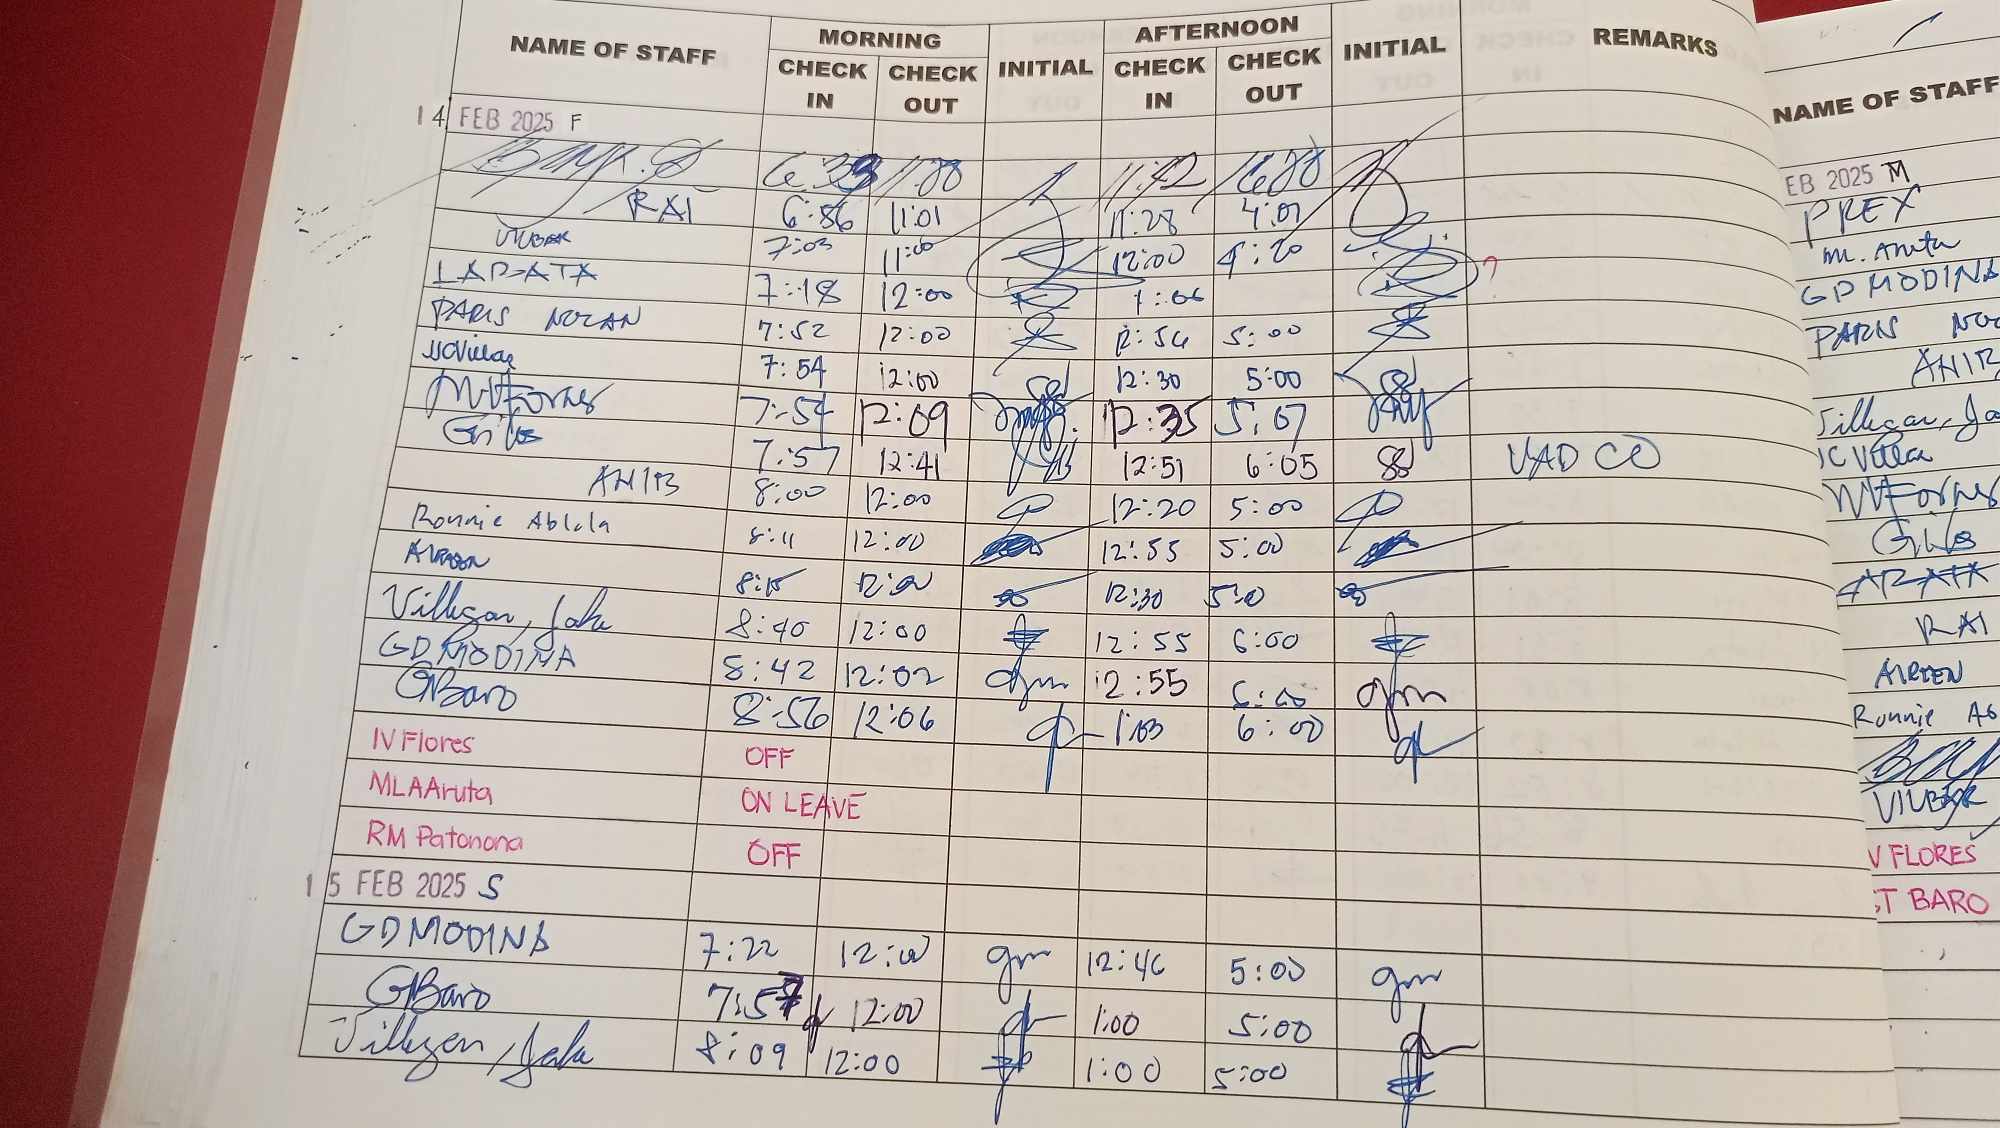 NAME OF STAFF MORNING INITIAL AFTERNOON INITIAL REMARKS
CHECK IN CHECK OUT CHECK IN CHECK OUT
14 FEB 2025 F
11:42
RAI 6:56 11:01 11:28 4:01
7:03 11:00 12:00 4:20
LAP-ATA 7:18 12:00 1:06 ?
PARIS NOLAN 7:52 12:00 12:56 5:00
JJCVillar 7:54 12:00 12:30 5:00
MVForner 7:54 12:09 12:35 5:07
Gilbs 7:57 12:41 12:51 6:05 VADCO
AHIB 8:00 12:00 12:20 5:00
Ronnie Ablola 8:11 12:00 12:55 5:00
8:15 12:00 12:30 5:00
Villegan, Jake 8:40 12:00 12:55 6:00
GDMODINA 8:42 12:02 gm 12:55 gm
GBaro 8:56 12:06 1:03 6:00
IV Flores OFF
MLAAruta ON LEAVE
RM Patonona OFF
15 FEB 2025 S
GDMODINA 7:22 12:00 gm 12:46 5:00 gm
GBaro 7:57 12:00 1:00 5:00
Villegan, Jake 8:09 12:00 1:00 5:00
NAME OF STAFF
EB 2025 M
PREX
ML Aruta
GDMODINA
PARIS NO
AHIB
Villegan, Ja
JCVillar
MVForner
Gilbs
AP-ATA
RAI
Ronnie Ab
V FLORES
ST BARO